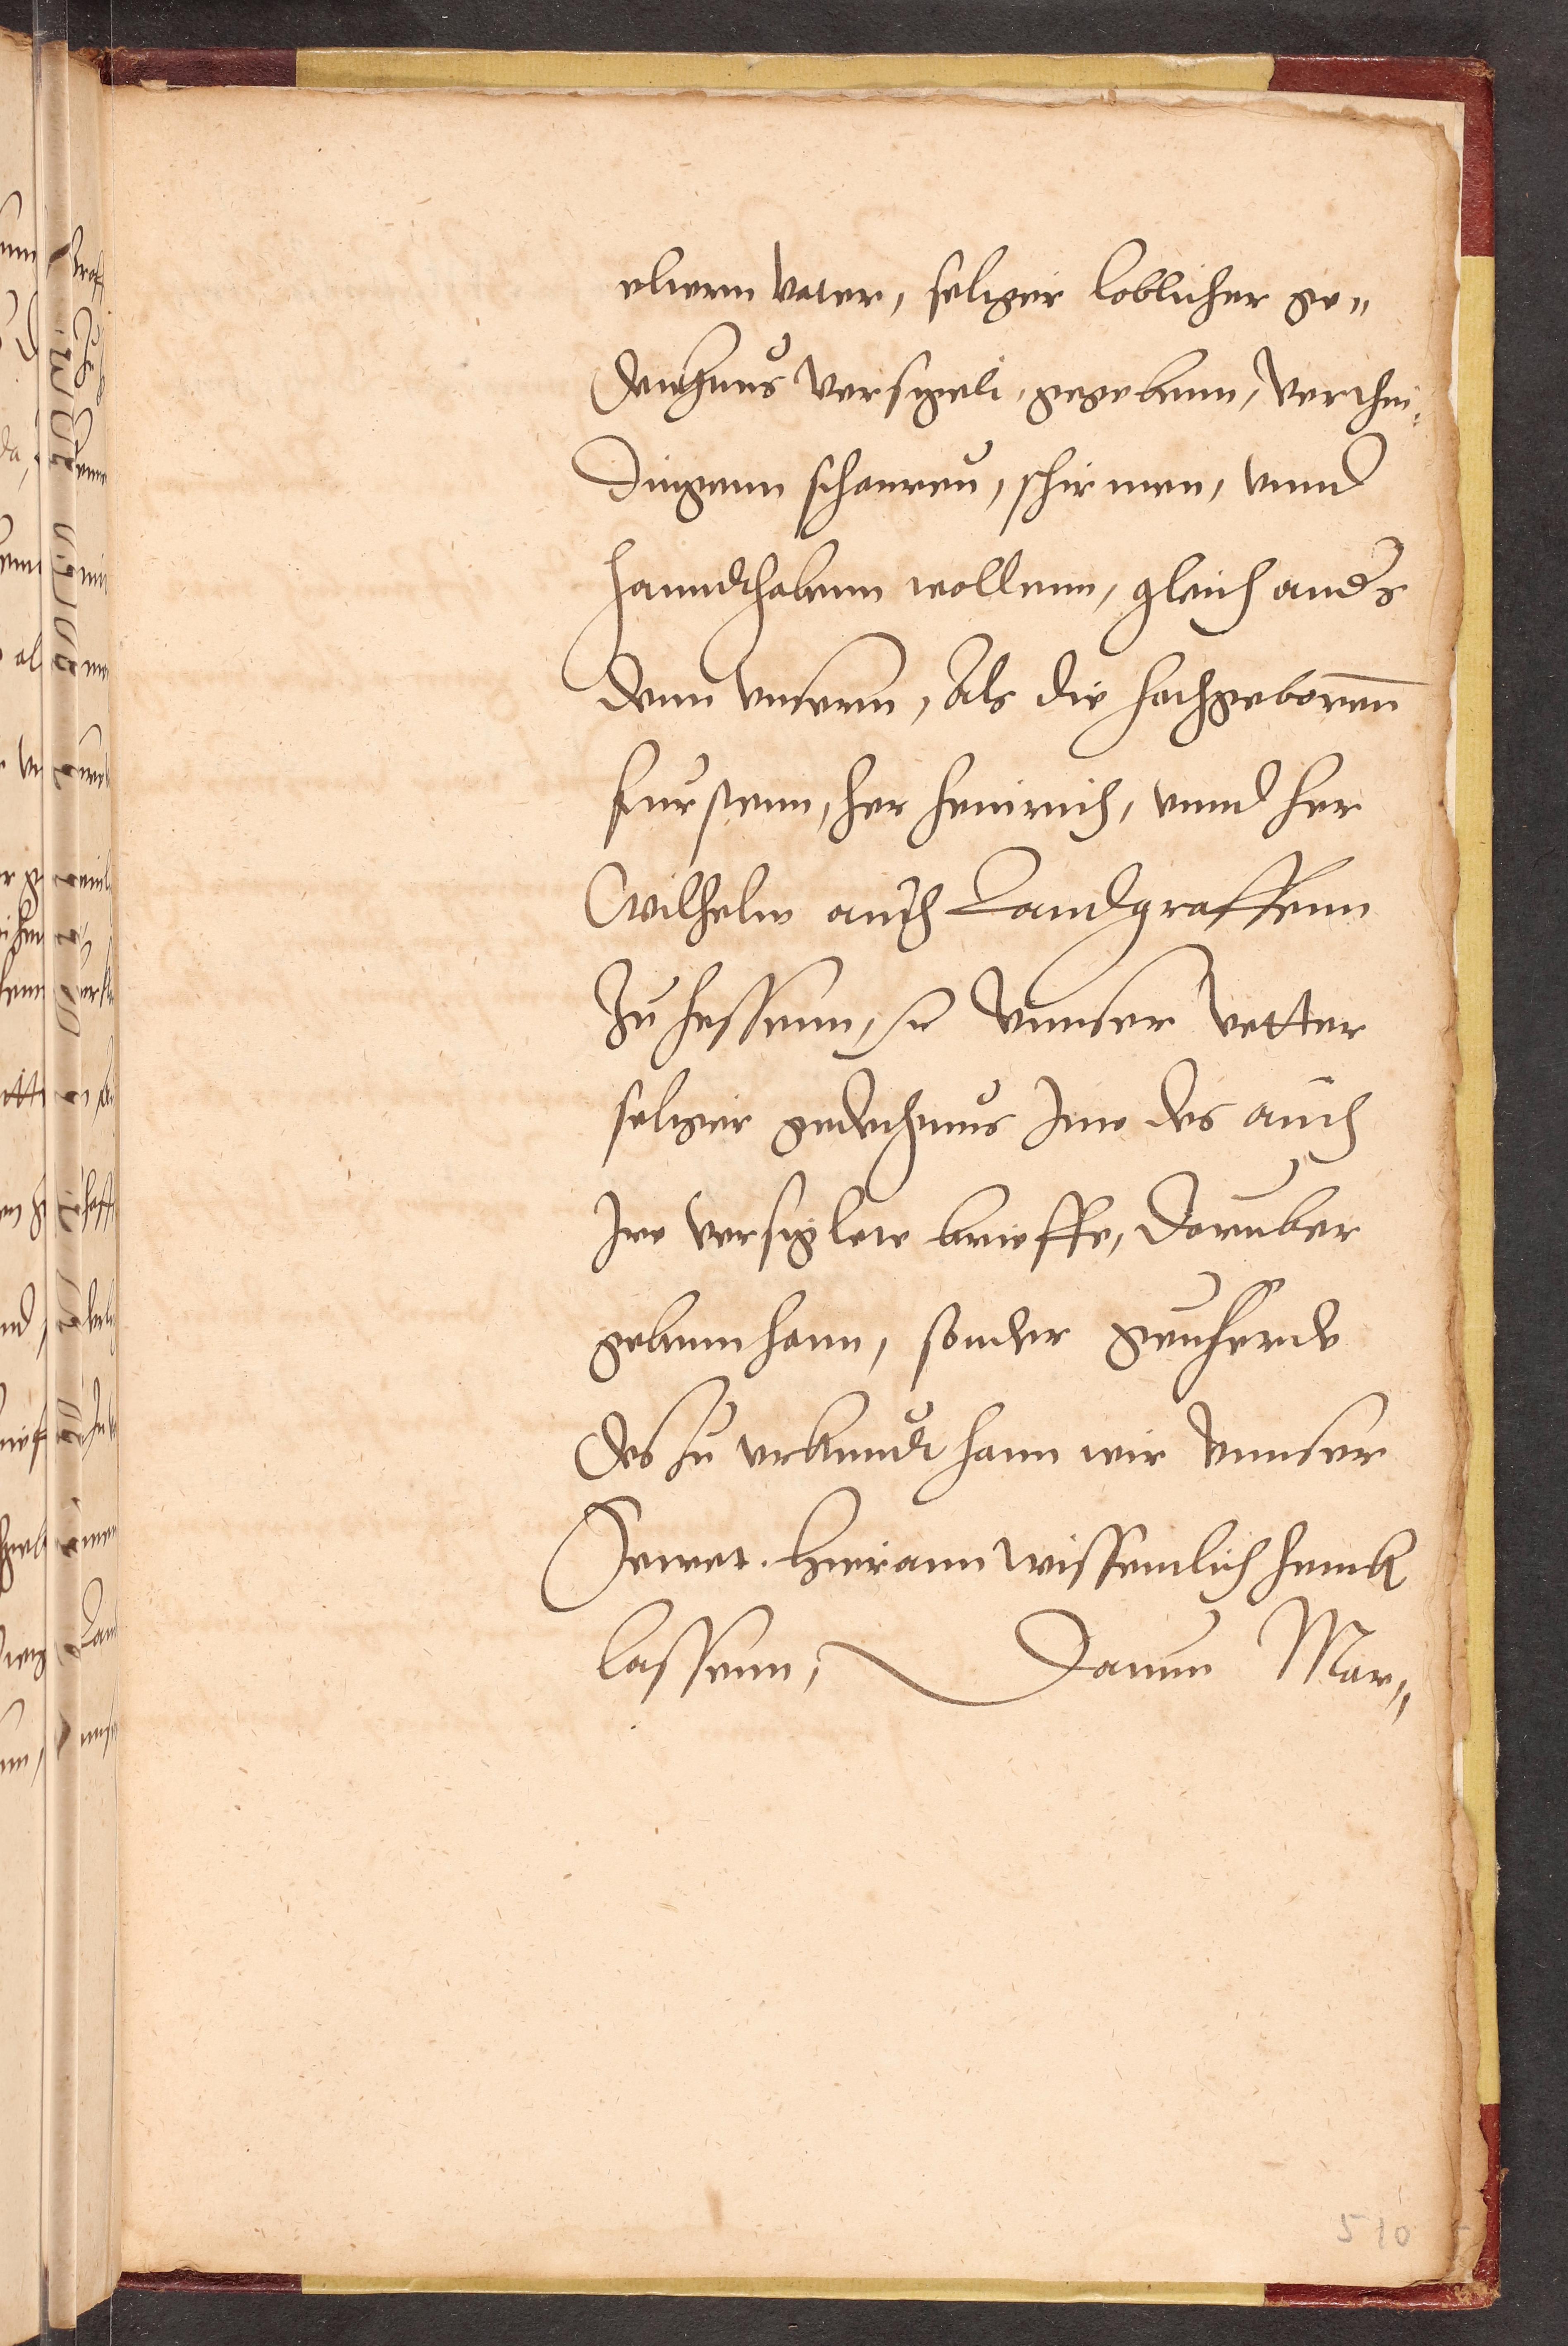 elternn vater, seliger loblicher ge„
dechtnus versigelt, gegebenn, verthei„
dingenn schauren, schirmen, vnnd
hanndthabenn wollenn, gleich anders
denn vnsernn, Als die hochgebornen
furstenn, her Heinrich, vnnd her
Wilhelm auch Landgraffenn
zu Hessenn, vnnser vetter
seliger gedechtnus Ime des auch
Ire versiglete brieffe, daruber
gebenn hann, sonder geuherde
des zu vrkundt hann wir vnnser
Secret. hierann wissentlich henck
lassenn, Datum Mar„
510